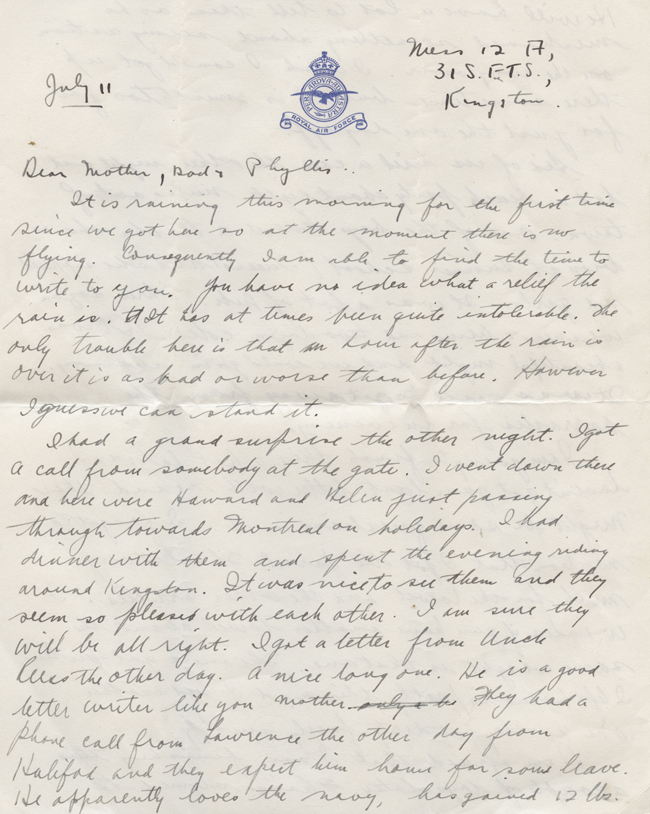 Mess 12 A,
31 S.F.T.S.,
Kingston.
July 11
PER ARDUA AD ASTRA
ROYAL AIR FORCE
Dear Mother, Dad & Phyllis..
It is raining this morning for the first time
since we got here so at the moment there is no
flying. Consequently I am able to find the time to
write to you. You have no idea what a relief the
rain is. It has at times been quite intolerable. The
only trouble here is that an hour after the rain is
over it is as bad or worse than before. However
I guess we can stand it.
I had a grand surprise the other night. I got
a call from somebody at the gate. I went down there
and here were Howard and Helen just passing
through towards Montreal on holidays. I had
dinner with them and spent the evening riding
around Kingston. It was nice to see them and they
seem so pleased with each other. I am sure they
will be all right. I got a letter from Uncle
the other day. A nice long one. He is a good
letter writer like you Mother. They had a
phone call from Lawrence the other day from
Halifax and they expect him home for some leave.
He apparently loves the navy, has gained 12 lbs.